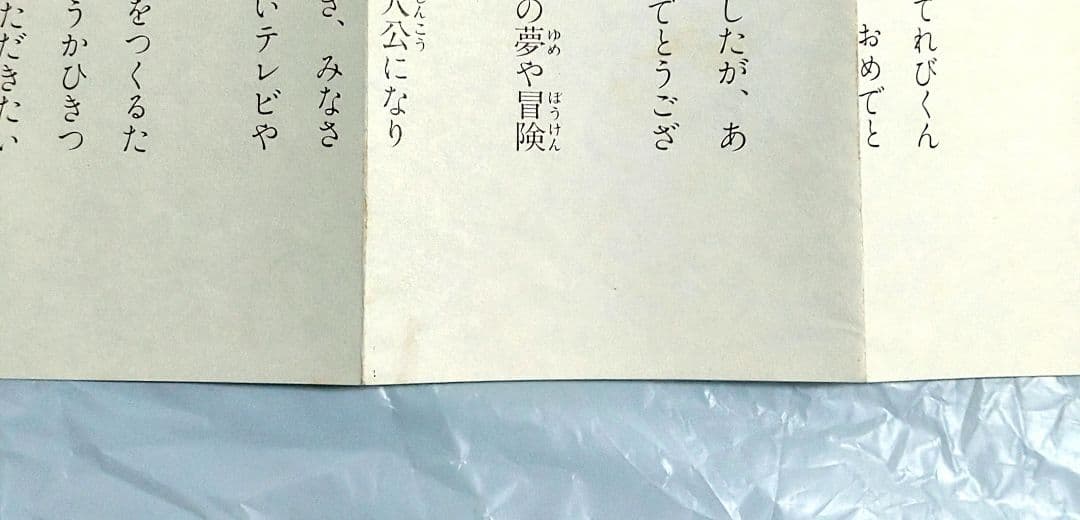 てれびくん
おめでと
したが、あ
でとうござ
の夢や冒険
ゆめ
ぼうけん
公になり
んこう
、みなさ
いテレビや
をつくるた
うかひきつ
ただきたい